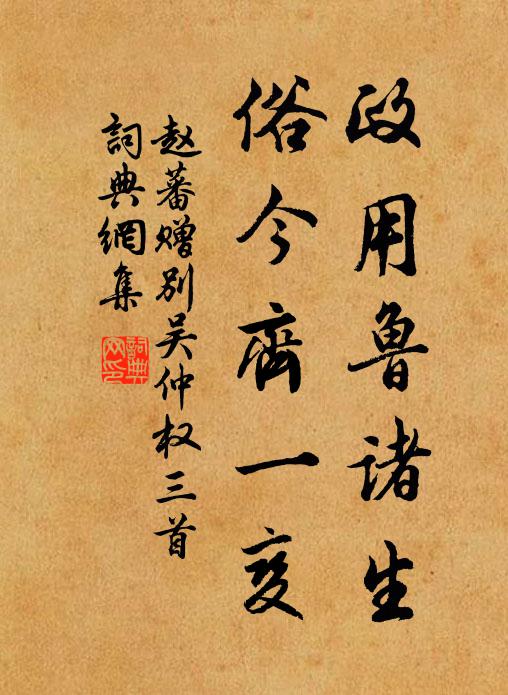 政用鲁诸生
俗今齊一变
赵蕃赠别吴仲权三首
詞典網集
詞典网印